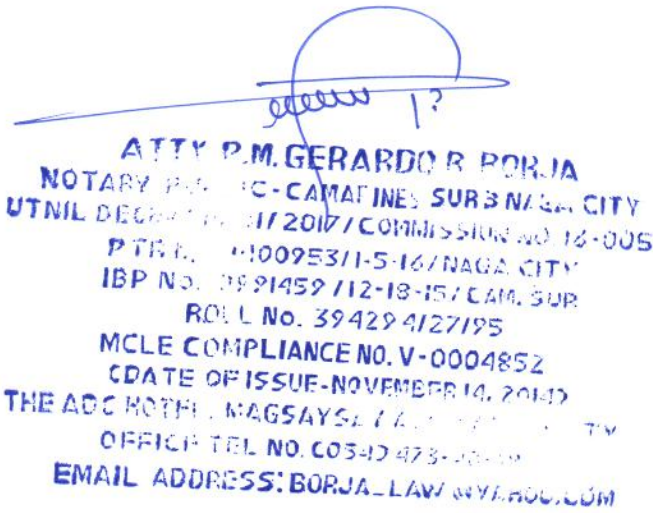 ATTY P.M. GERARDO R BORJA
NOTARY C-CAMARINES SUR & NAGA CITY
UTNIL DEC 31/2017/COMMISSION NO. 16-005
PTR 100953/1-5-16/NAGA CITY
IBP NO. 0991459/12-18-15/CAM. SUR
ROLL No. 39429 4/27/95
MCLE COMPLIANCE NO. V-0004852
(DATE OF ISSUE-NOVEMBER 14, 2014)
THE ADC HOTEL, MAGSAYSAY
OFFICE TEL NO. (054) 473-
EMAIL ADDRESS: BORJA_LAW @YAHOO.COM